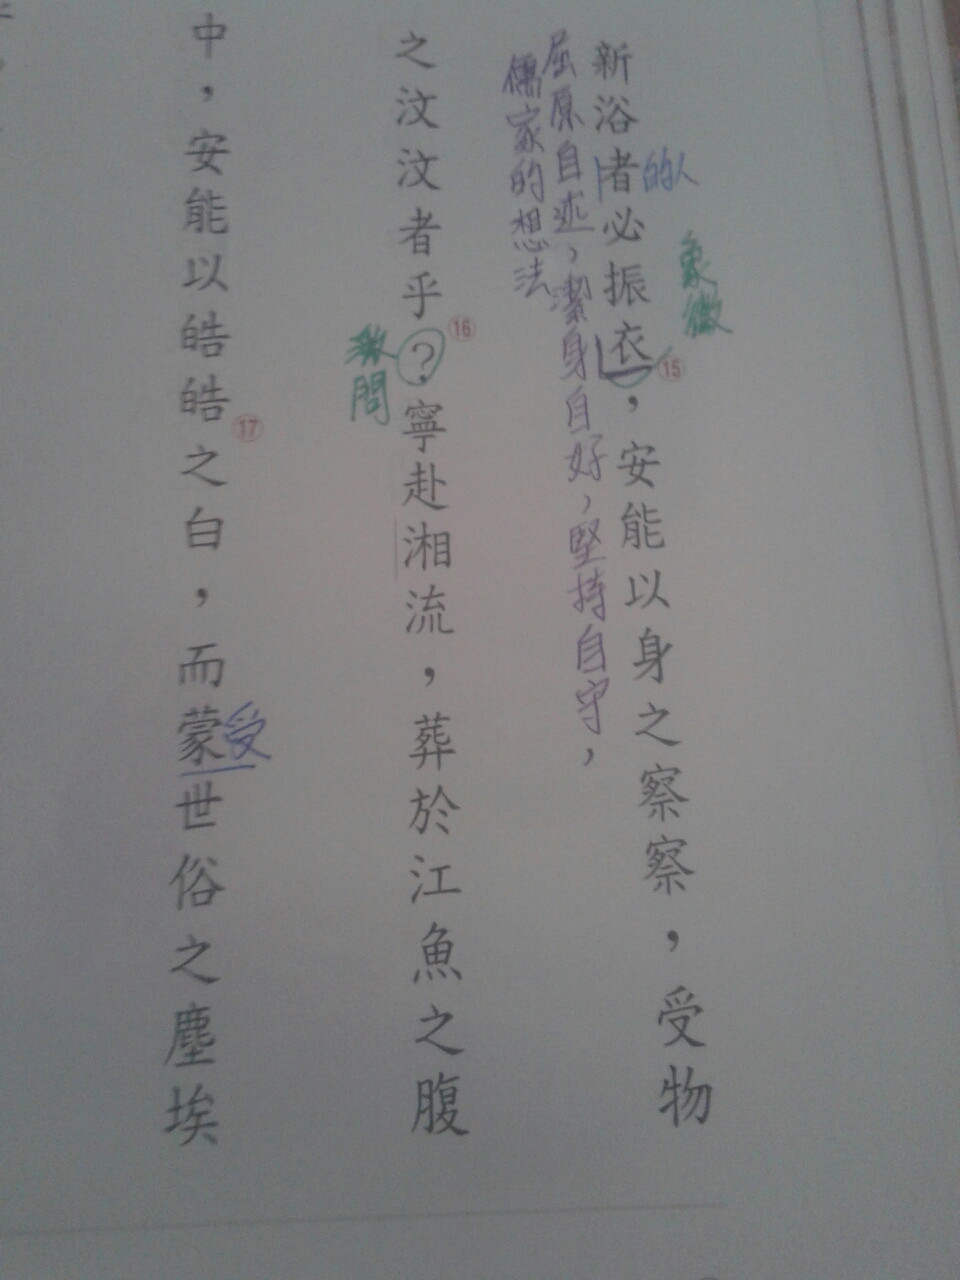 新浴者必振衣⑮，安能以身之察察，受物
的人
象徵
屈原自述，潔身自好，堅持自守，
儒家的想法
之汶汶者乎⑯？寧赴湘流，葬於江魚之腹
激問
中，安能以皓皓⑰之白，而蒙世俗之塵埃
受